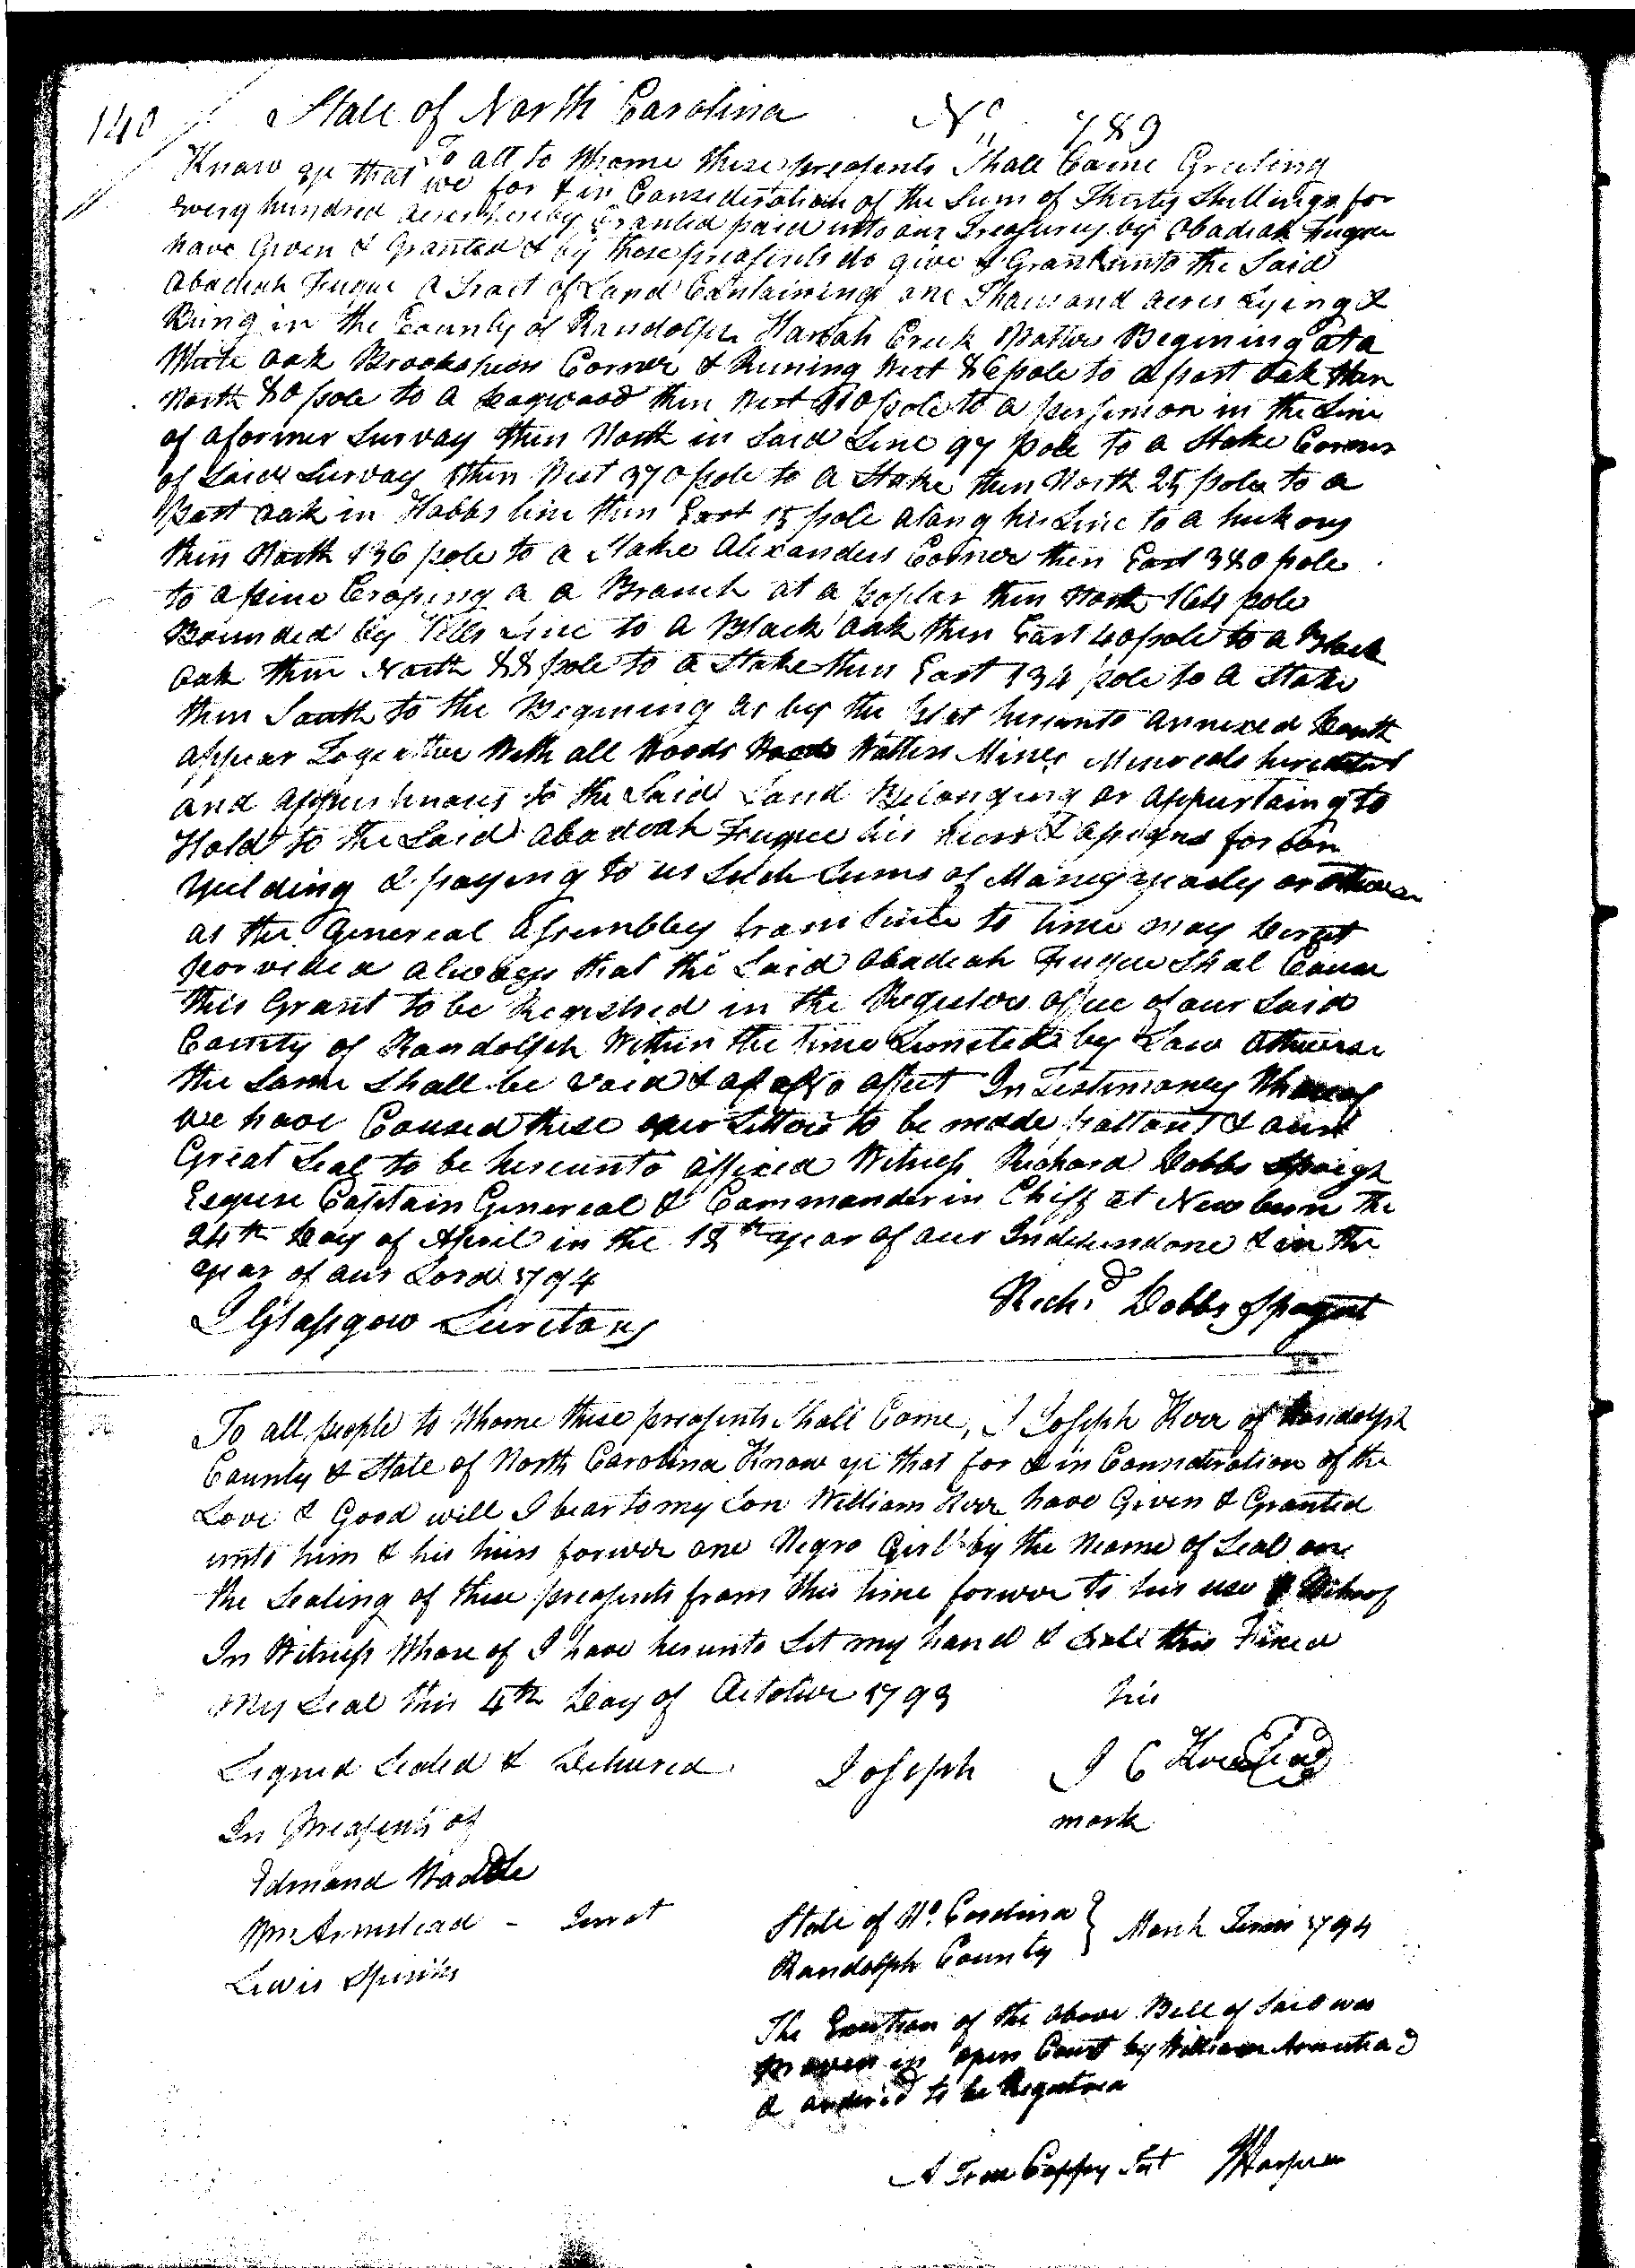 140 State of North Carolina No 789
To all to Whome these preasents Shall Come Greeting
Know ye that we for & in Consideration of the Sum of Thirty Shillings for
every hundred acres hereby Granted paid into our Treasurey by Obadiah Fuque
have Given & Granted & by these preasents do give & Grant unto the Said
Obadiah Fuque a Tract of Land Containing one Thousand acres Lying &
Being in the County of Randolph Hannah Creek Watters Begining at a
White oak Brookshers Corner & Runing West 86 pole to a post oak then
North 80 pole to a Dogwood then West 110 pole to a persimon in the Line
of a former Survay then North in Said Line 97 pole to a Stake Corner
of Said Survay then West 370 pole to a Stake then North 25 pole to a
Post oak in Hobbs line then East 15 pole along his Line to a hickory
then North 136 pole to a Stake Alexanders Corner then East 380 pole
to a pine Crossing a a Branch at a poplar then North 164 pole
Bounded by Line to a Black oak then East 40 pole to a Black
oak then North 88 pole to a Stake then East 134 pole to a Stake
then South to the Begining as by the plat hereunto annexed Doath
appear Togeather With all Woods Watters Mines Minreals
and appurtinances to the Said Land Belonging or appurtaing to
Hold to the Said Obadiah Fuque his heirs & assigns for
Yielding & paying to us Such Sums of Money yearly or
as the Genereal Assembley from time to time may
porvided always that the Said Obadiah Fuque Shal Cause
this Grant to be Registred in the Registors office of our Said
County of Randolph Within the time Limited by Law otherwise
the Same Shall be void & of no affect In Testimoney Whereof
we have Caused these our Letters to be made pattant & our
Great Seal to be hereunto affixed Witness Richard Dobbs Spaigh
Esquire Captain Genereal & Commander in Chiff at Newbern the
24th Day of April in the 18th year of our Independance & in the
year of our Lord 1794
J Glasgow Secretary Richd Dobbs Spaight
To all people to Whome these preasents Shall Come, I Joseph Kerr of Randolph
County & State of North Carolina Know ye that for & in Consideration of the
Love & Good will I bear to my Son William Kerr have Given & Granted
unto him & his heirs forever one Negro Girl by the Name of Seal
the Sealing of these preasents from this time forever to his use
In Witness Whare of I have hereunto Set my hand & Seal this Fixed
My Seal this 4th Day of October 1793 his
Signed Sealed & Delivered Joseph J C Kerr Seal
In Preasents of mark
Edmond Waddle
Wm Armstead - Jurat State of No. Carolina } March Term 1794
Lewis Spinks Randolph County
The Execution of the above Bill of Sail was
proven in open Court by William Armstead
& ordered to be Registred
A True Coppy Test J Harper